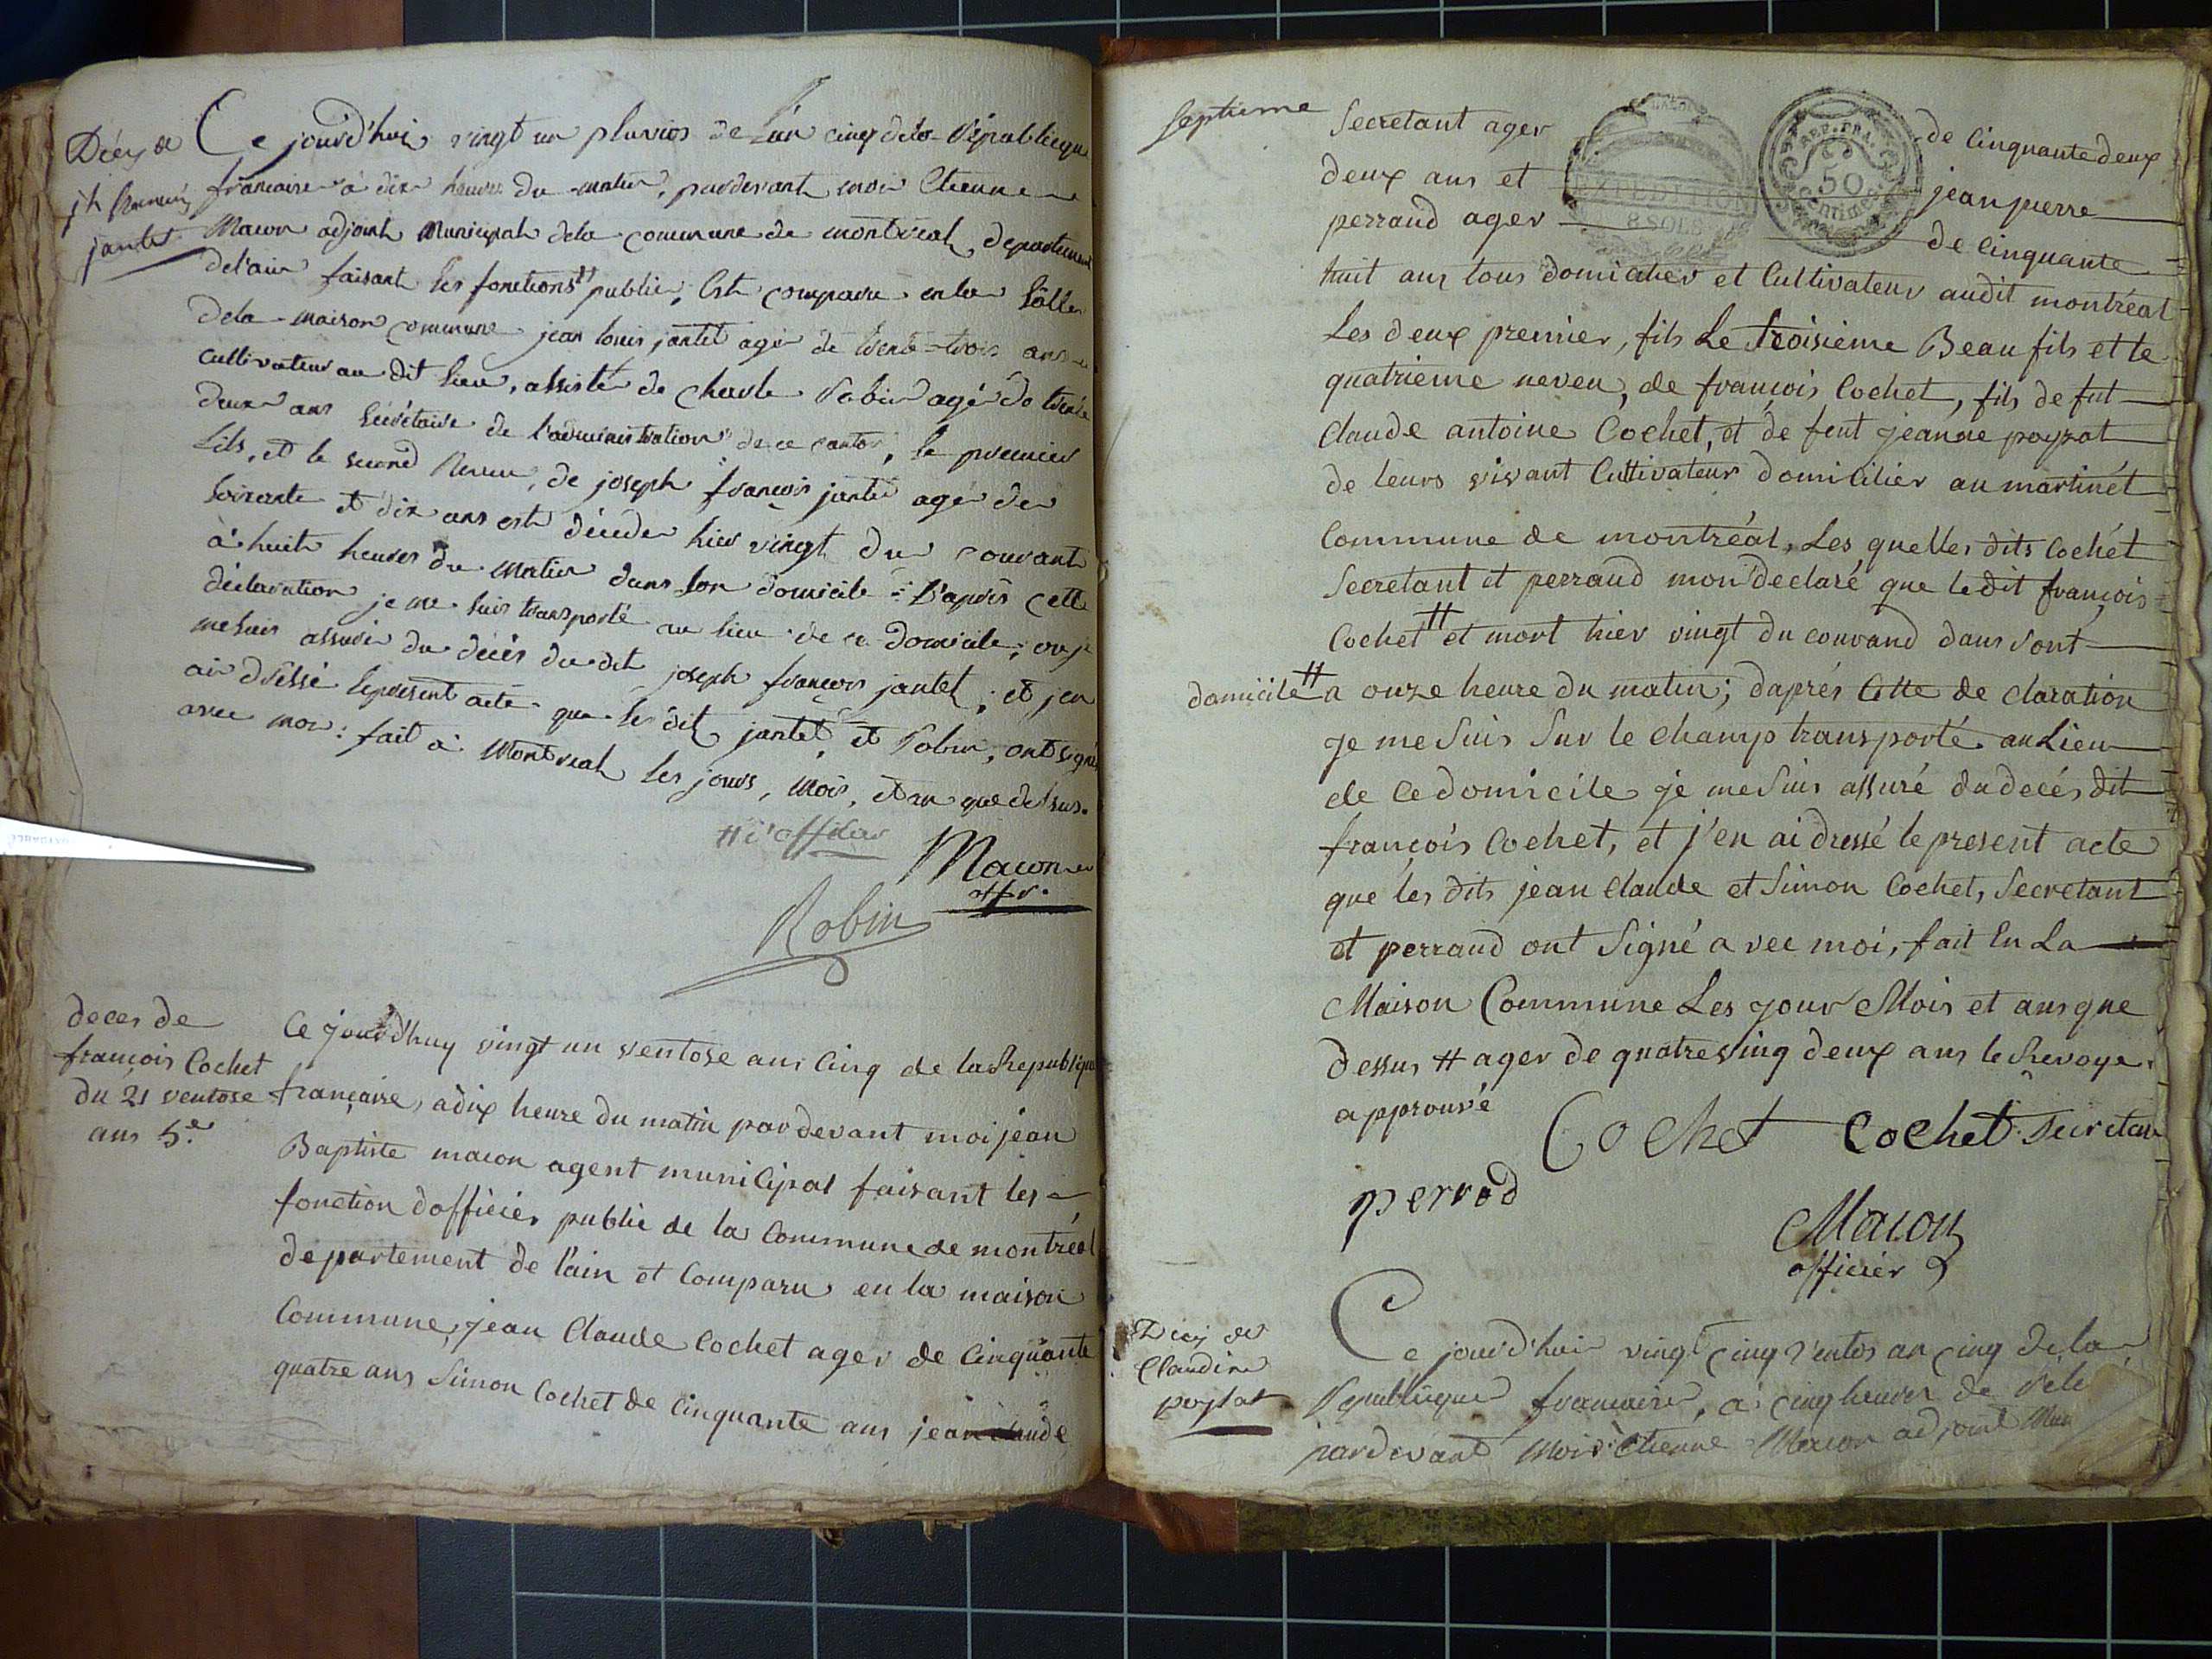 Décès de
jh françois
jantet
Ce jourd'hui vingt un pluvios de L'an cinq de la Républicque
francaise à dix heures du matin, pardevant moi Etienne
Macon adjoint Municipal dela commune de montréal, departement
del'ain faisant les fonctions # public, Est comparu en la Sâlle
dela maison commune jean louis jantet agé de trente-trois ans
cultivateur au dit lieu, assisté de Charle Robin agé de trente
deux ans Secrétaire de l'administration de ce canton, le premier
fils, et le second Neveu, de joseph françois jantet agé de
soixante et dix ans est décéder hier vingt du courant
à huit heures du matin dans son domicile : D'après cette
déclaration je me suis transporté au lieu de ce domicile, ou je
me suis assuré du décès du dit joseph françois jantet ; et j'en
ai dréssé le présent acte que le dit jantet, et Robin, ont signé
avec moi : fait à Montréal les jours, mois, et an que dessus.
# d'officier
Macon
offr.
Robin
deces de
françois Cochet
du 21 ventose
ans 5.e
Ce jourdhuy vingt un ventose ans Cinq de la Republique
françaire, a dix heure du matin par devant moi jean
Baptiste macon agent municipal faisant les
fonction dofficier public de la Commune de montréal
departement de l'ain et Comparu en la maison
Commune, jean Claude Cochet ager de Cinquante
quatre ans Simon Cochet de Cinquante ans jean claude
septieme
Secretant ager de Cinquante deux
EXPEDITION
8 SOLS
REP. FRA.
50
Centimes
deux ans et jean pierre
perraud ager de Cinquante
huit ans tous domicilier et Cultivateur audit montréal
Les deux premier, fils Le troisieme Beau fils et le
quatrieme neveu, de françois Cochet, fils de fut
Claude antoine Cochet, et de feut jeanne poyzat
de leurs vivant Cultivateur domicilier au martinet
Commune de montréal, Les quelles dits Cochet
Secretant et perraud mon declaré que ledit françois
Cochet # et mort hier vingt du courand dans sont
domicile # a onze heure du matin; daprés Cette de claration
je me suis sur le champ transporté au Lieu
de ce domicile je me suis assuré du decés dit
françois Cochet, et j'en ai dressé le present acte
que les dits jean Claude et Simon Cochet, Secretant
et perraud ont Signé avec moi, fait En La
Maison Commune Les jour Mois et ans que
dessus # ager de quatrevinq deux ans le Renvoye
approuvé
Cochet Cochet Secretan
perrod
Macon
officier
Décés de
Claudine
poysat
Ce jourd'hui vingt cinq Ventos an cinq dela
Républicque francaise, a cinq heures de
pardevant Moi Etienne Macon adjoint Mun